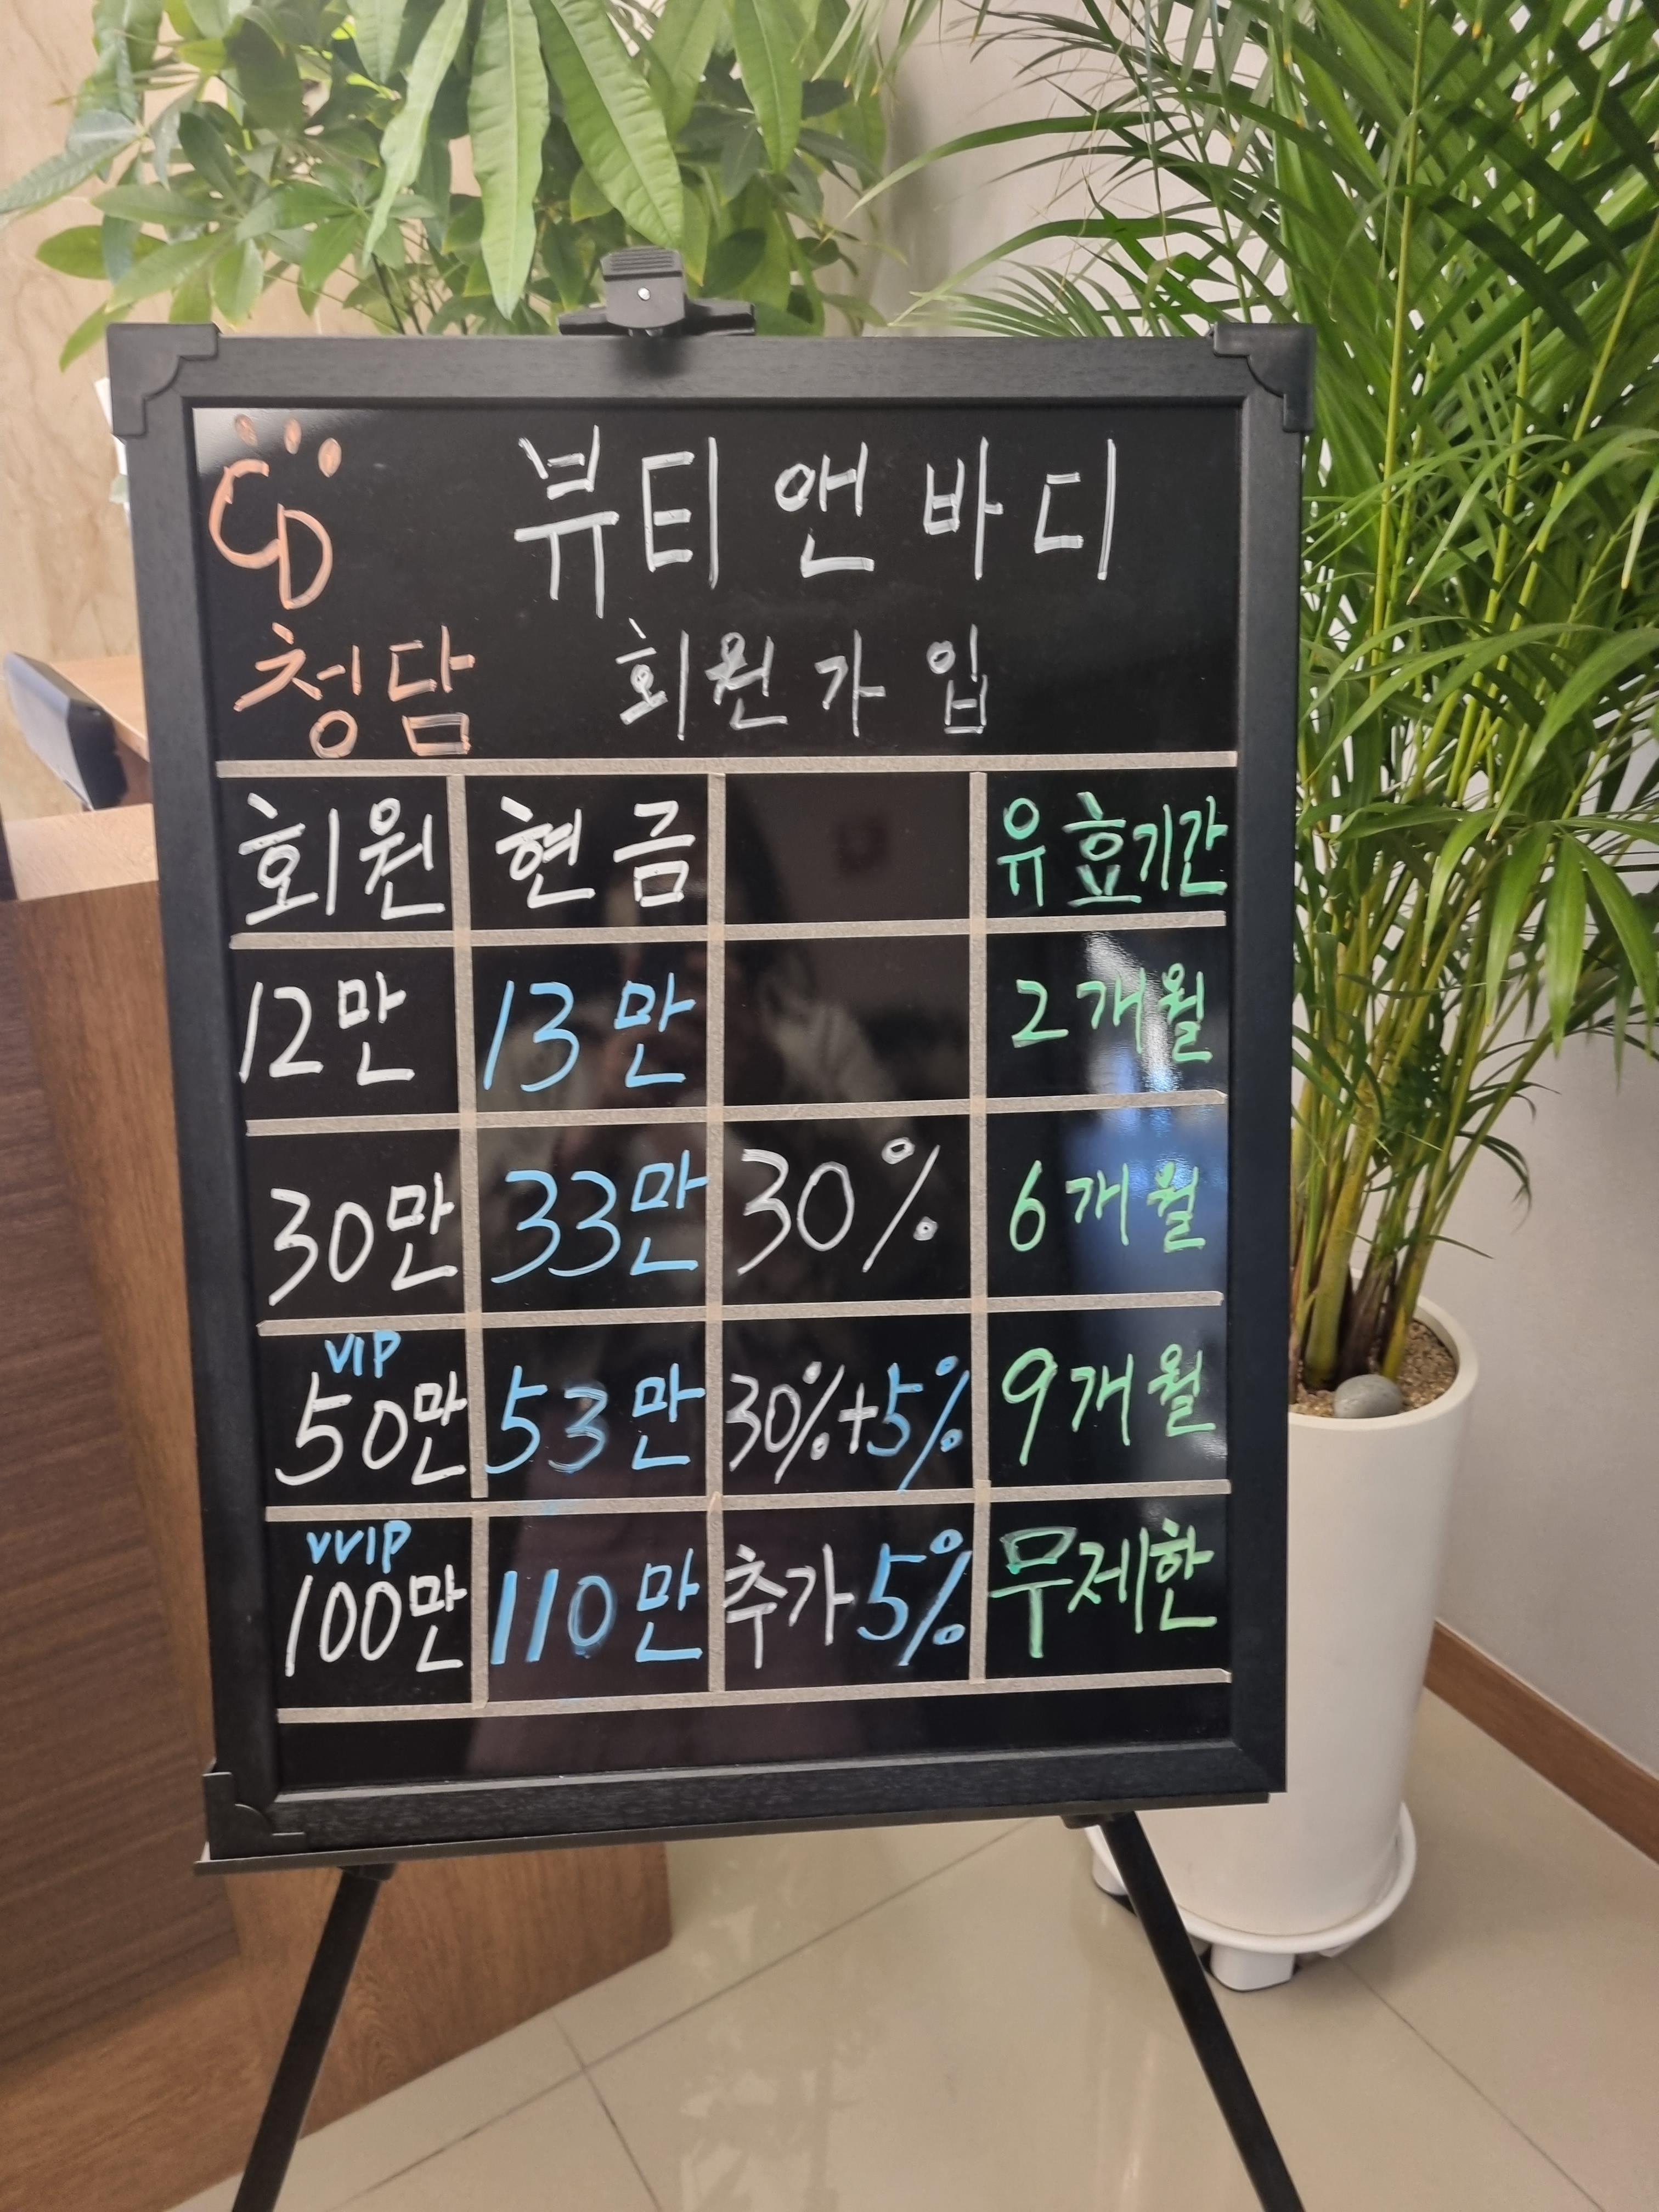 CD 뷰티앤바디
청담 회원가입
회원 현금 유효기간
12만 13만 2개월
30만 33만 30% 6개월
VIP
50만 53만 30%+5% 9개월
VVIP
100만 110만 추가5% 무제한